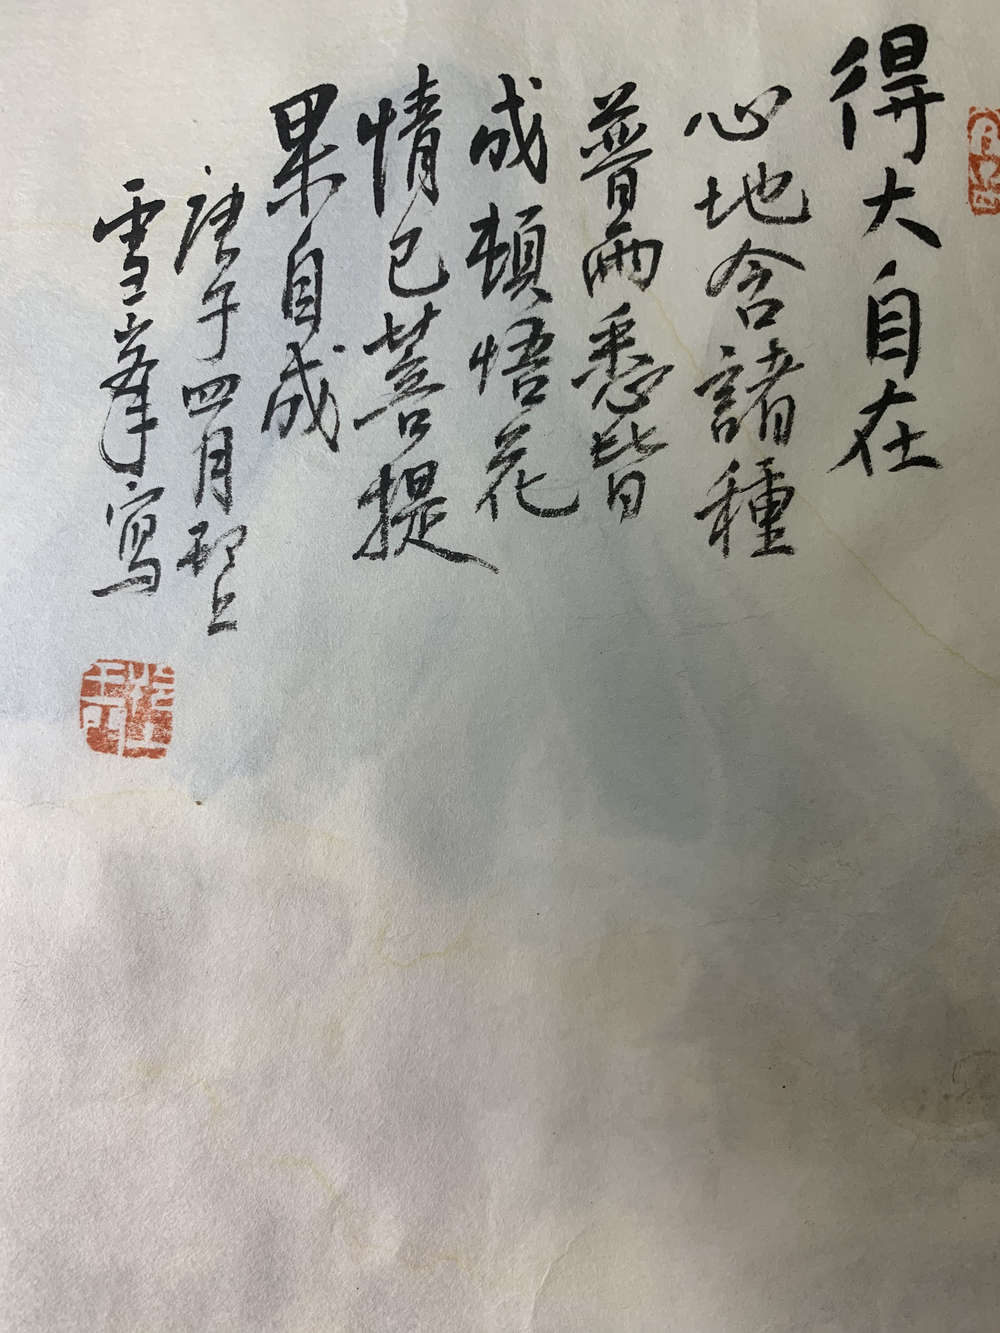 得大自在
心地含諸種
普雨悉皆
成頓悟花
情已菩提
果自成
庚子四月
雪峯寫